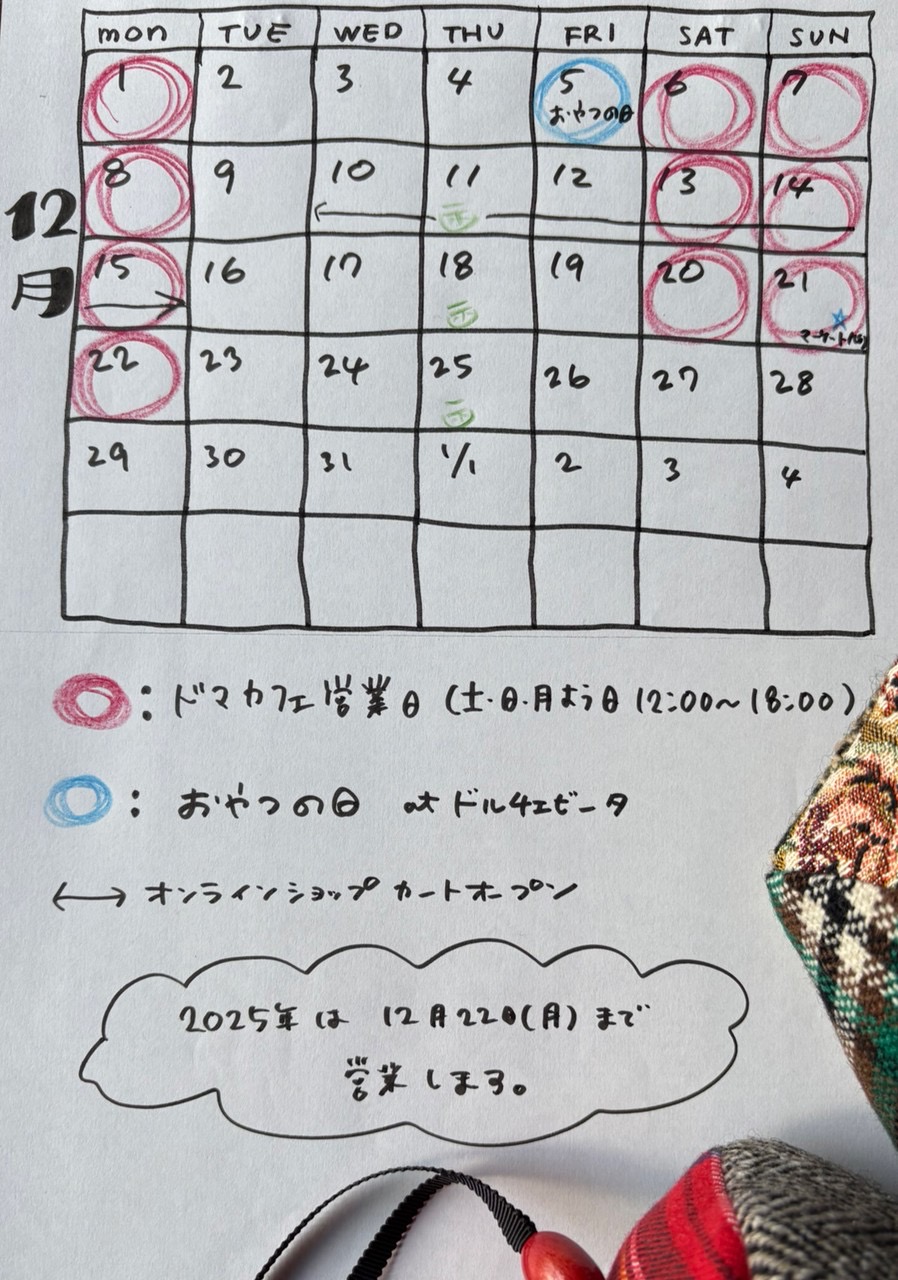 mon TUE WED THU FRI SAT SUN
1 2 3 4 5 6 7
おやつの日
12月
8 9 10 11 12 13 14
15 16 17 18 19 20 21
22 23 24 25 26 27 28
29 30 31 1/1 2 3 4
：ドマカフェ営業日（土・日・月よう日 12:00〜18:00）
：おやつの日 at ドルチェビータ
オンラインショップ カートオープン
2025年は 12月22日(月)まで
営業します。